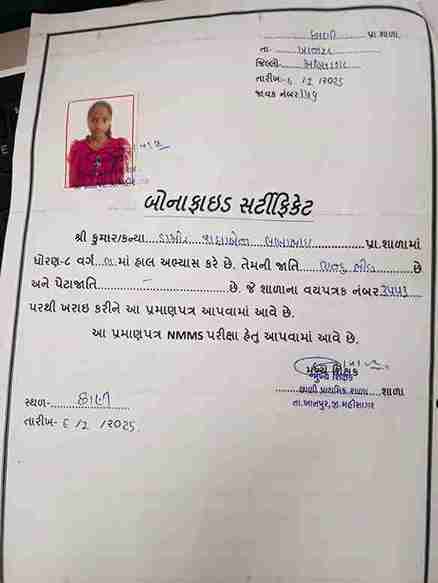 છાણી પ્રા.શાળા
તા. ખાનપુર
જિલ્લો મહીસાગર
તારીખ:- ૬ /2 /2025
જાવક નંબર
બોનાફાઇડ સર્ટીફિકેટ
શ્રી કુમાર/કન્યા ડામોર પ્રા.શાળામાં
ધોરણ-૮ વર્ગ માં હાલ અભ્યાસ કરે છે. તેમની જાતિ હિન્દુ ભીલ છે
અને પેટાજાતિ – છે. જે શાળાના વયપત્રક નંબર
પરથી ખરાઇ કરીને આ પ્રમાણપત્ર આપવામાં આવે છે.
આ પ્રમાણપત્ર NMMS પરીક્ષા હેતુ આપવામાં આવે છે.
મુખ્ય શિક્ષક
મુખ્ય શિક્ષક
છાણી પ્રાથમિક શાળા શાળા
તા.ખાનપુર,જી.મહીસાગર
સ્થળ- છાણી
તારીખ- ૬ /2 /2025